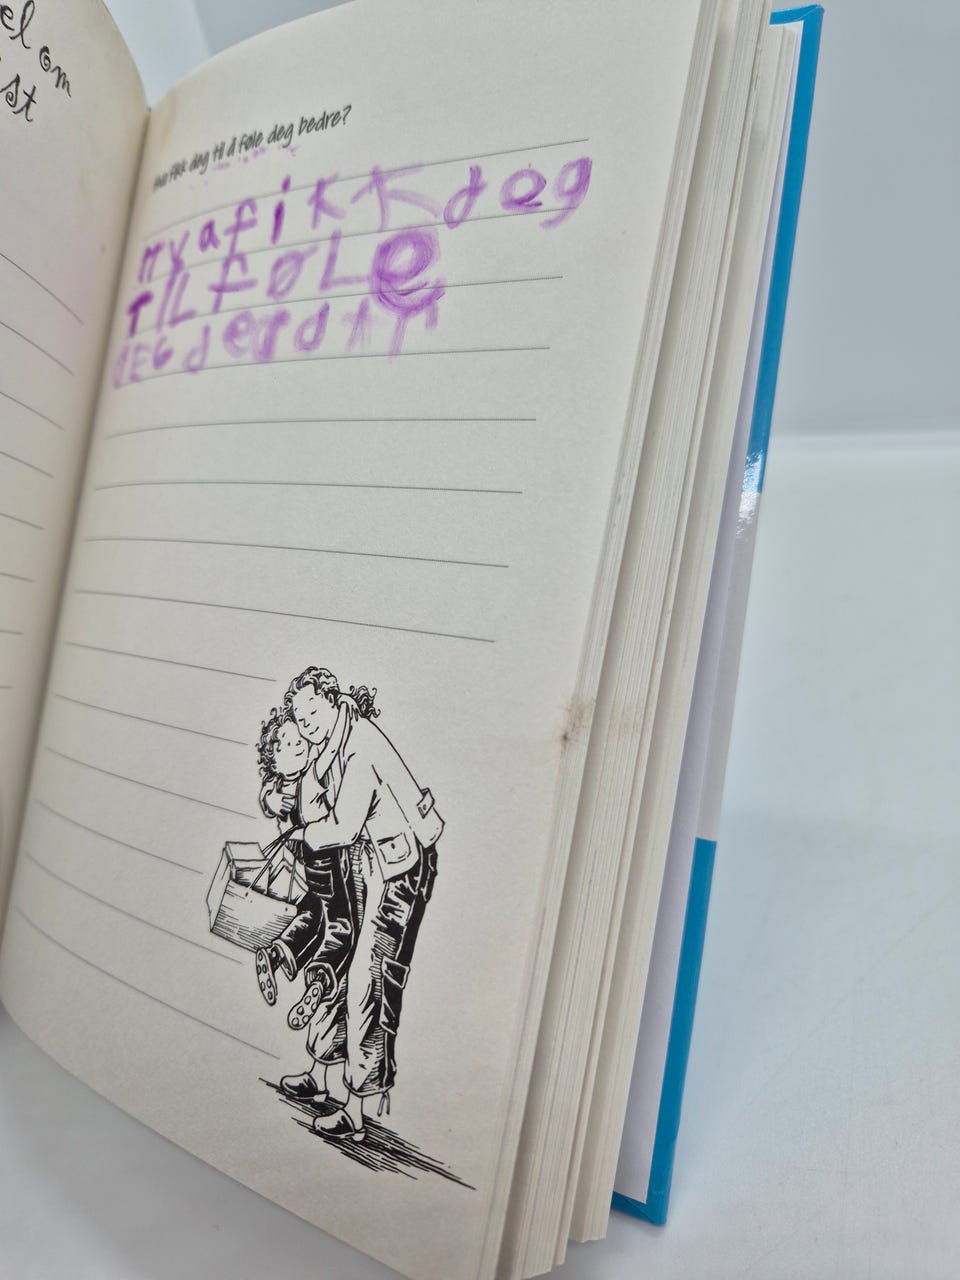 el om
st
Hva fikk deg til å føle deg bedre?
mva fikk deg
TIL FØLe
DEG